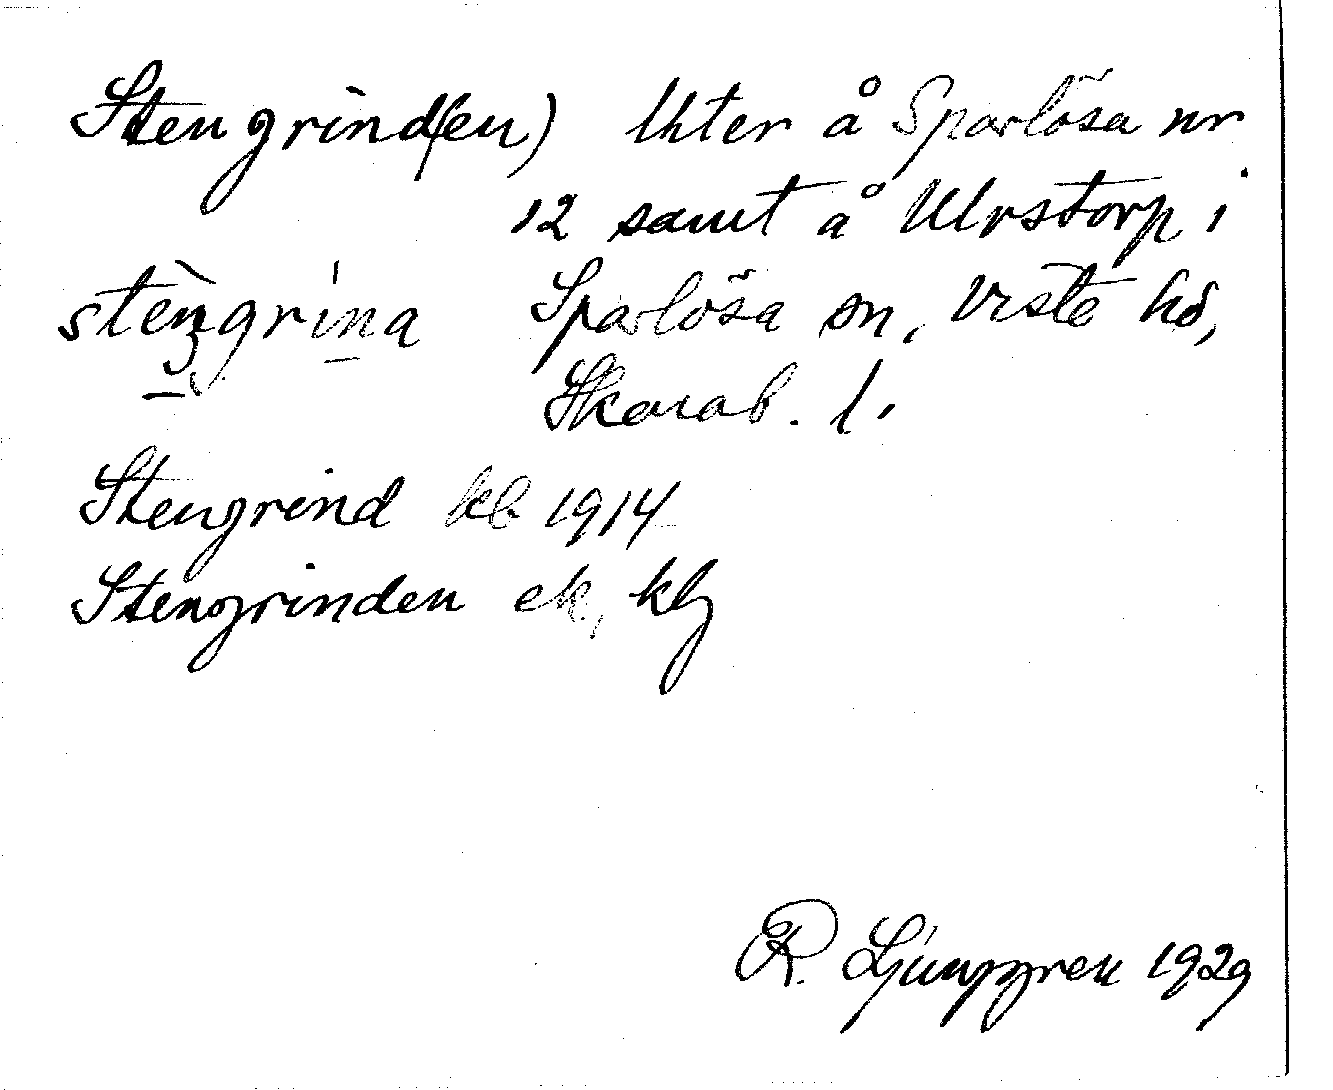 Stengrind(en) lhter å Sparlösa nr
12 samt å Ulvstorp i
stèŋgrína Sparlösa sn, Viste hd,
Skarab. l.
Stengrind kb 1914
Stengrinden ek, klj
R. Ljunggren 1929